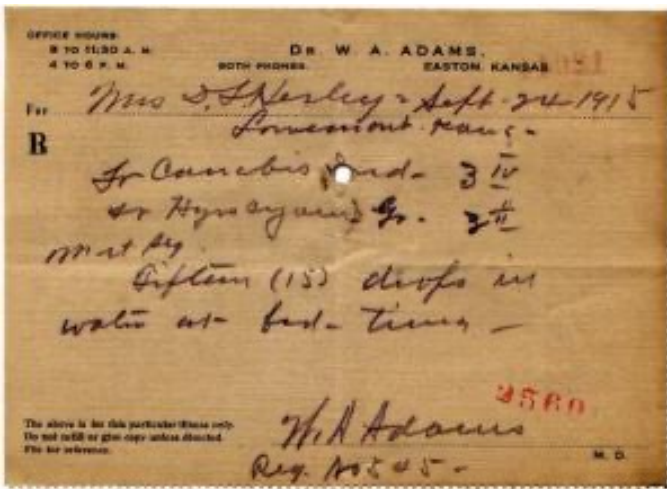 OFFICE HOURS
8 TO 11:30 A. M.
4 TO 6 P. M.
DR. W. A. ADAMS,
BOTH PHONES. EASTON, KANSAS
For Mrs D. L. Sept. 24 1915
Kans -
R
Tr Cannabis Ind - ʒ IV
Tr Hyoscyamus ʒ II
M et Sig.
Fifteen (15) drops in
water at bed-time -
2560
The above is for this particular illness only.
Do not refill or give copy unless directed.
File for reference.
W. A Adams
M. D.
Reg. No 545 -